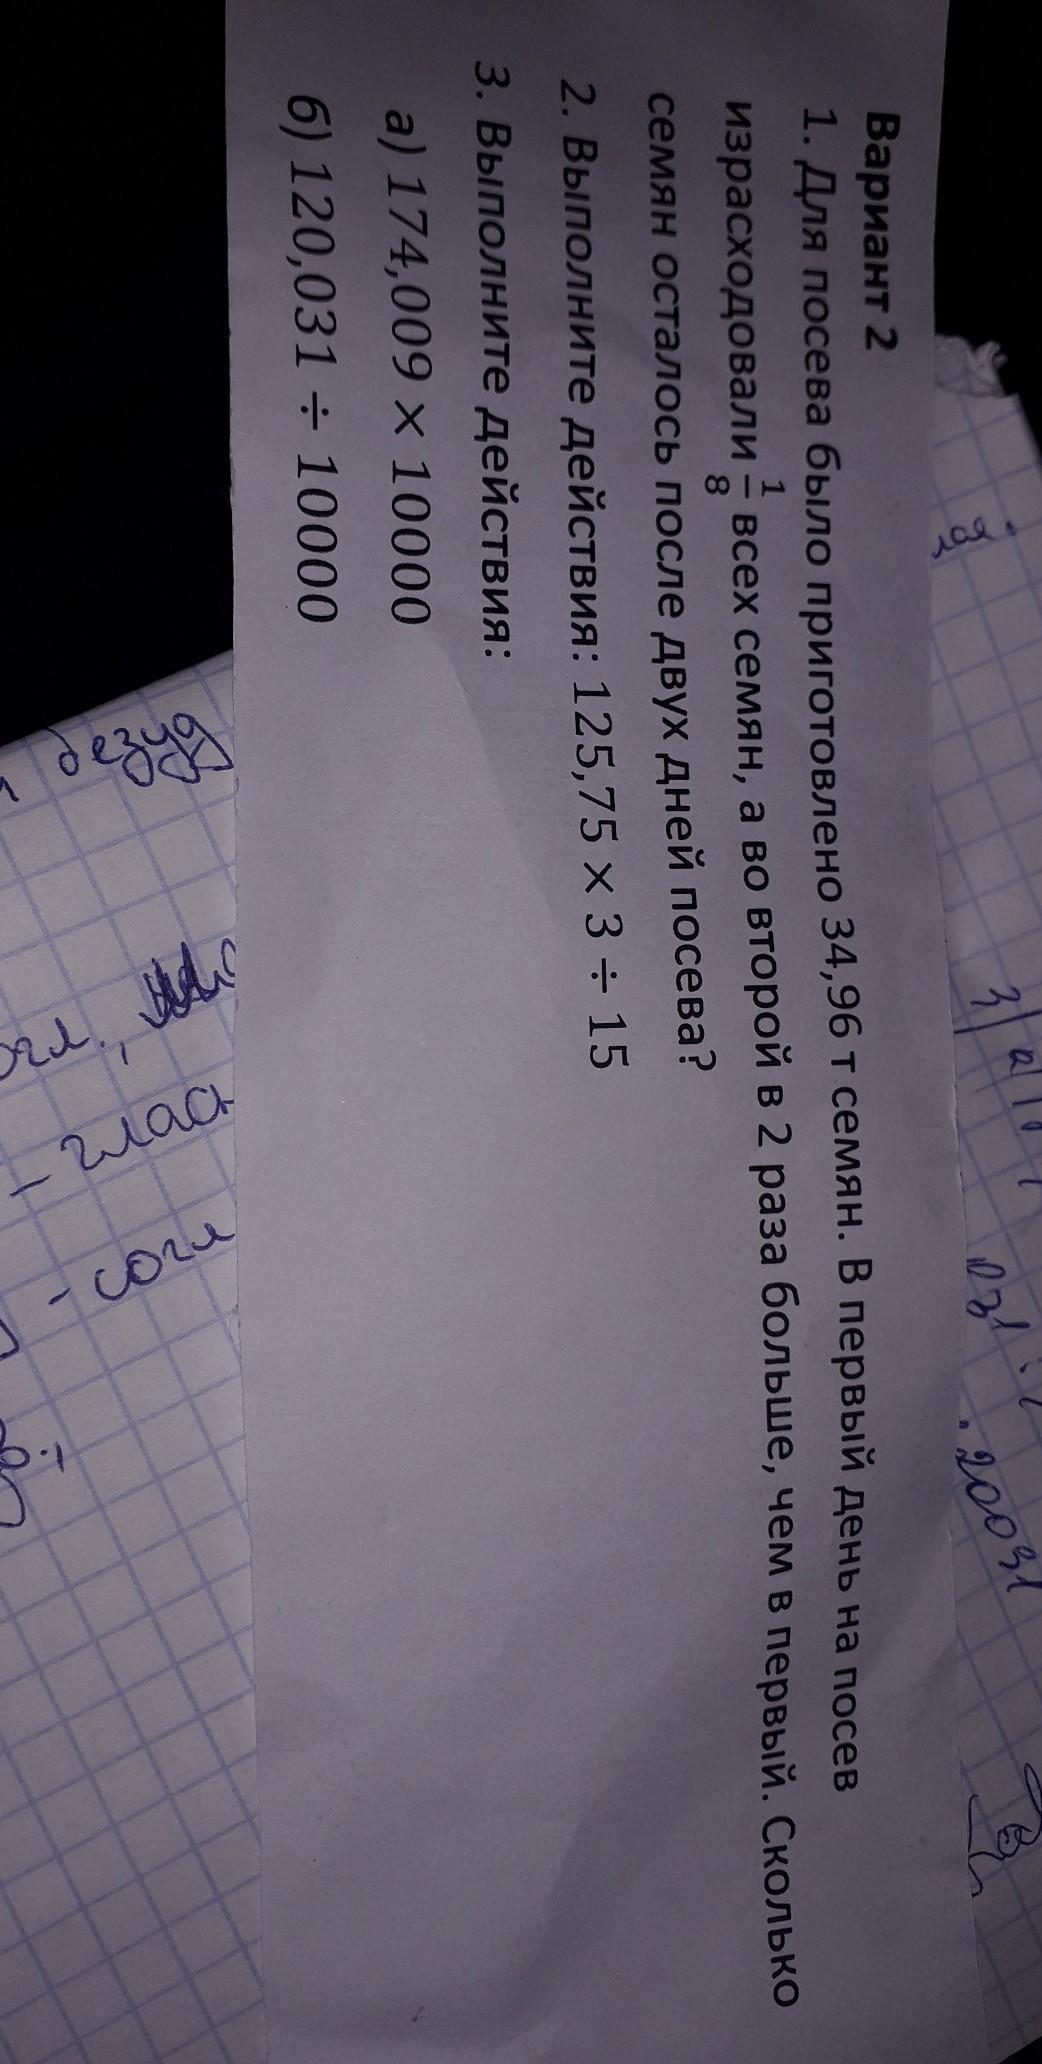 Вариант 2
1. Для посева было приготовлено 34,96 т семян. В первый день на посев
израсходовали 1/8 всех семян, а во второй в 2 раза больше, чем в первый. Сколько
семян осталось после двух дней посева?
2. Выполните действия: 125,75 × 3 ÷ 15
3. Выполните действия:
а) 174,009 × 10000
б) 120,031 ÷ 10000
безуд
- глас
- согл